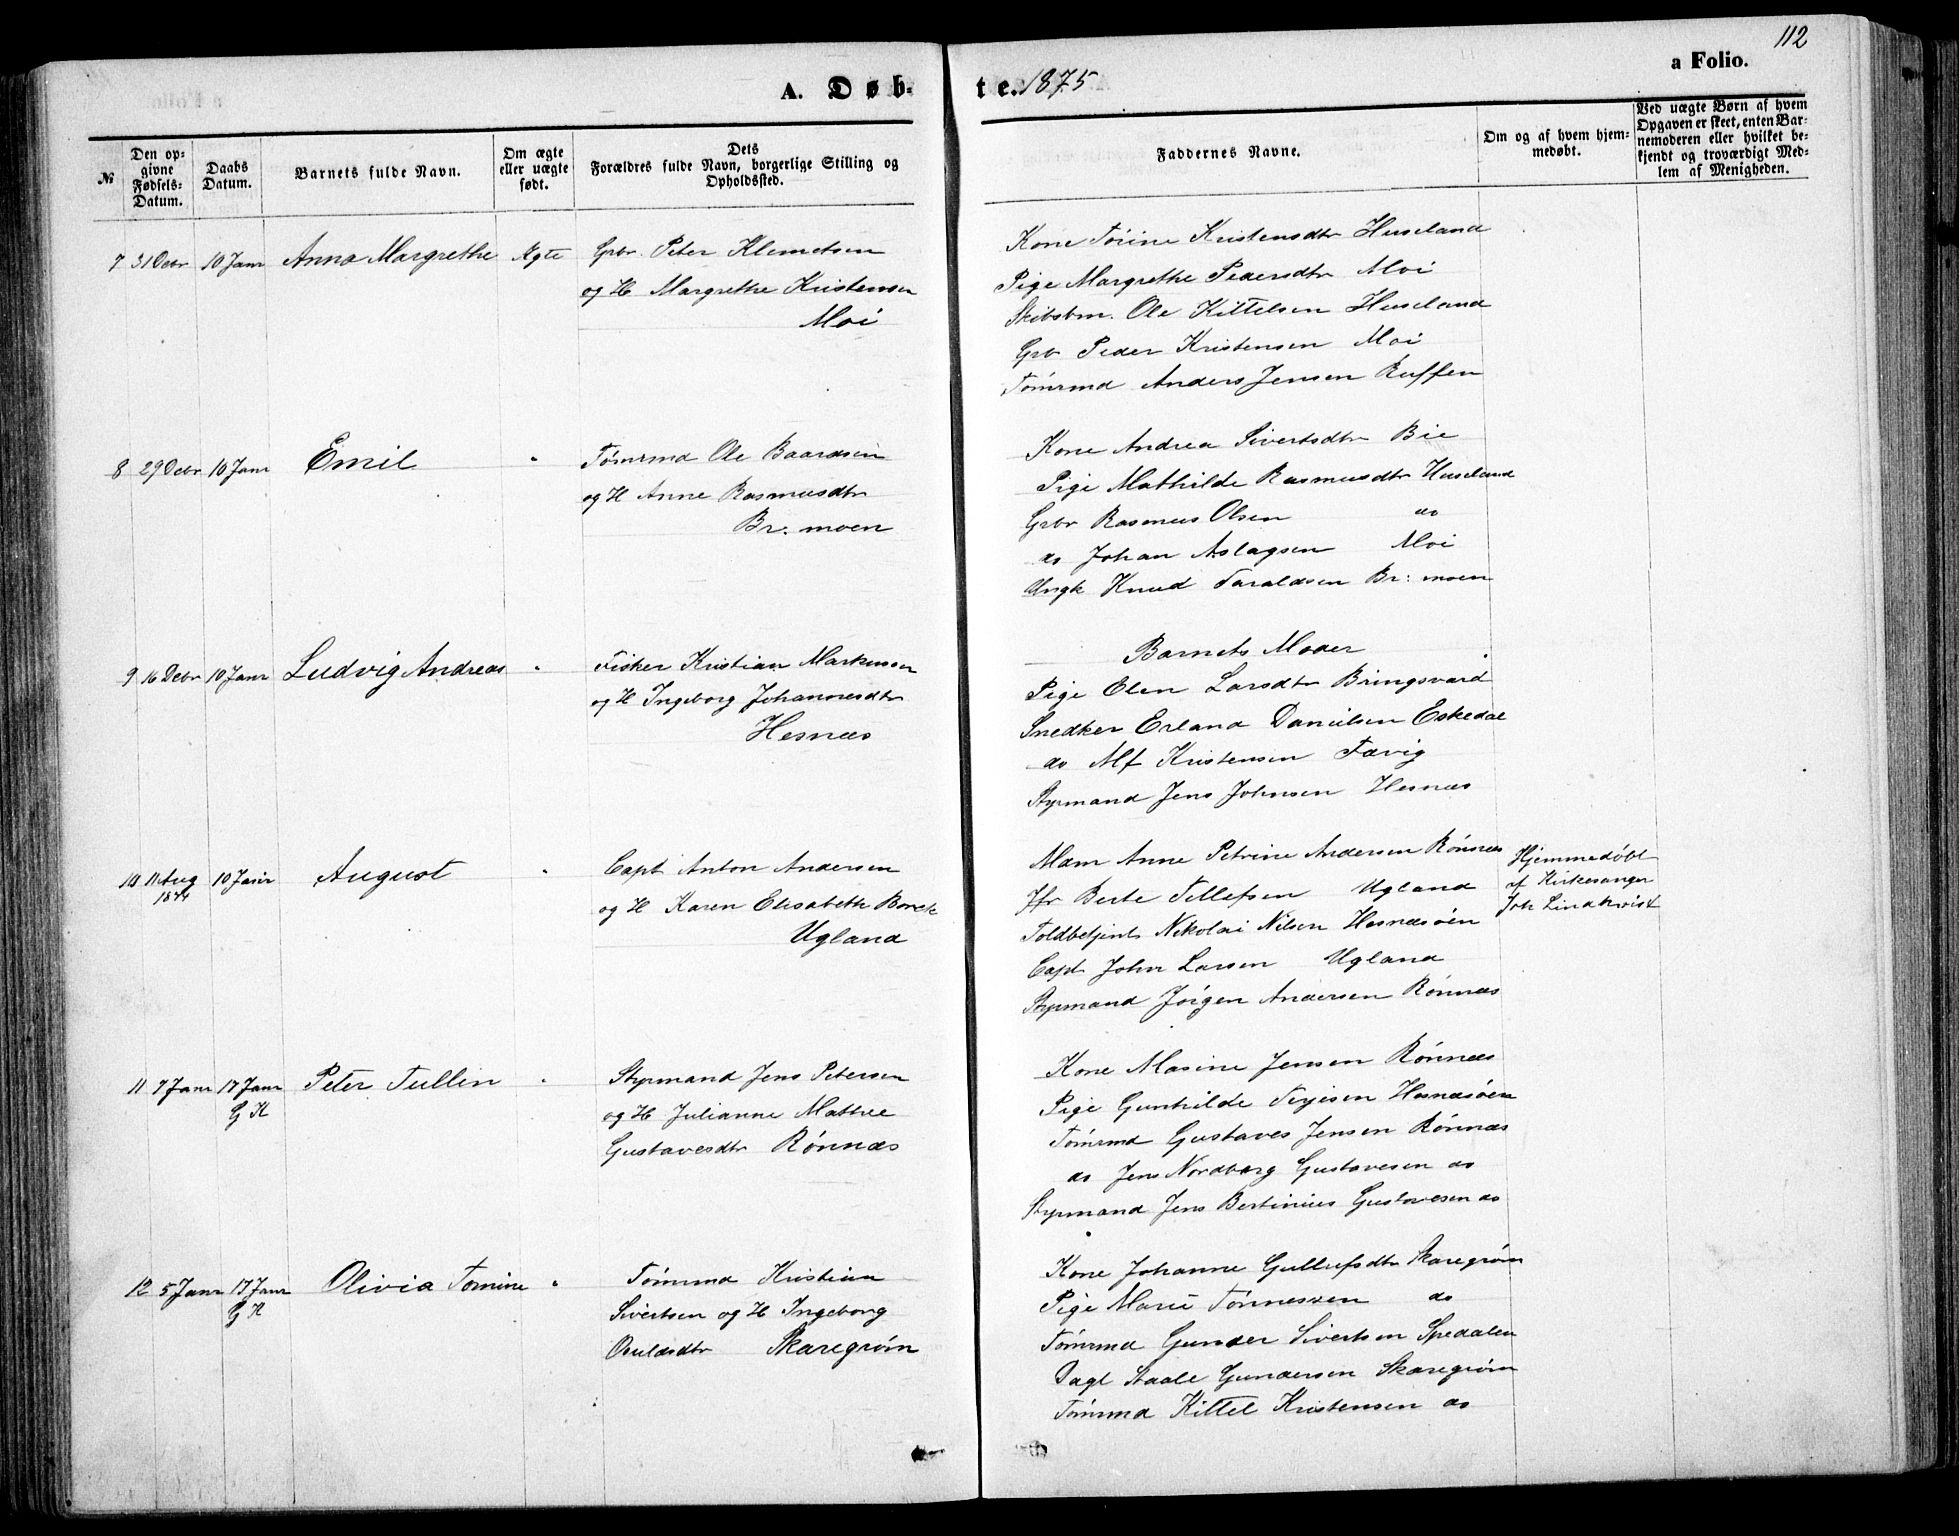 112
a Folio.
A. Døb-
te. 1875
№
Den op-
givne
Fødsels-
Datum.
Daabs
Datum.
Barnets fulde Navn.
Om ægte
eller uægte
født.
Dets
Forældres fulde Navn, borgerlige Stilling og
Opholdssted.
Faddernes Navne.
Om og af hvem hjem-
medøbt.
Ved uægte Børn af hvem
Opgaven er skeet, enten Bar-
nemoderen eller hvilket be-
kjendt og troværdigt Med-
lem af Menigheden.
7 31 Decbr 10 Janr Anna Margrethe Ægte Grbr. Peter Klemetsen
og H Margrethe Kristensen
Moi
Kone Torine Kristensdtr Huseland
Pige Margrethe Pedersdtr Moi
Skibsbm. Ole Kittelsen Huseland
Grb Peder Kristensen Moi
Tømrmd Anders Jensen Ruffen
8 29 Decbr 10 Janr Emil " Tømrmd Ole Baardsen
og H Anne Rasmusdtr
Br: moen
Kone Andrea Sivertsdtr Bie
Pige Mathilde Rasmusdtr Huseland
Grbr Rasmus Olsen do
do Johan Aslagsen Moi
Ungk Knud Taraldsen Br: moen
9 16 Decbr 10 Janr Ludvig Andreas " Fisker Kristian Markussen
og H Ingeborg Johannesdtr
Hesnæs
Barnets Moder
Pige Elen Larsdtr Bringsværd
Snedker Erland Danielsen Eskedal
do Alf Kristensen Fævig
Styrmand Jens Johnsen Hesnæs
10 11 Aug 10 Janr August " Capt Anton Andersen
1874
og H Karen Elisabeth Bonck
Ugland
Mam Anne Petrine Andersen Rønnæs
Jfr Berte Tellefsen Ugland
Toldbetjent Nikolai Nilsen Hesnæsøen
Capt John Larsen Ugland
Styrmand Jørgen Andersen Rønnæs
Hjemmedøbt
af Kirkesanger
Joh Lindkvist
11 7 Janr 17 Janr Peter Tullin " Styrmand Jens Petersen
G K
og H Julianne Mathee
Gustavesdtr Rønnæs
Kone Masine Jensen Rønnæs
Pige Gunhilde Terjesen Hesnæsøen
Tømrmd Gustaves Jensen Rønnæs
do Jens Nordborg Gustavesen do
Styrmand Jens Bertinius Gustavesen do
12 5 Janr 17 Janr Olivia Tomine " Tømrmd Kristian
G K
Sivertsen og H Ingeborg
Osuldsdtr Skaregrøm
Kone Johanne Gullufsdtr Skaregrøm
Pige Marie Tønnessen do
Tømrmd Gunder Sivertsen Spedalen
Dagl Staale Gundersen Skaregrøm
Tømrmd Kittel Kristensen do